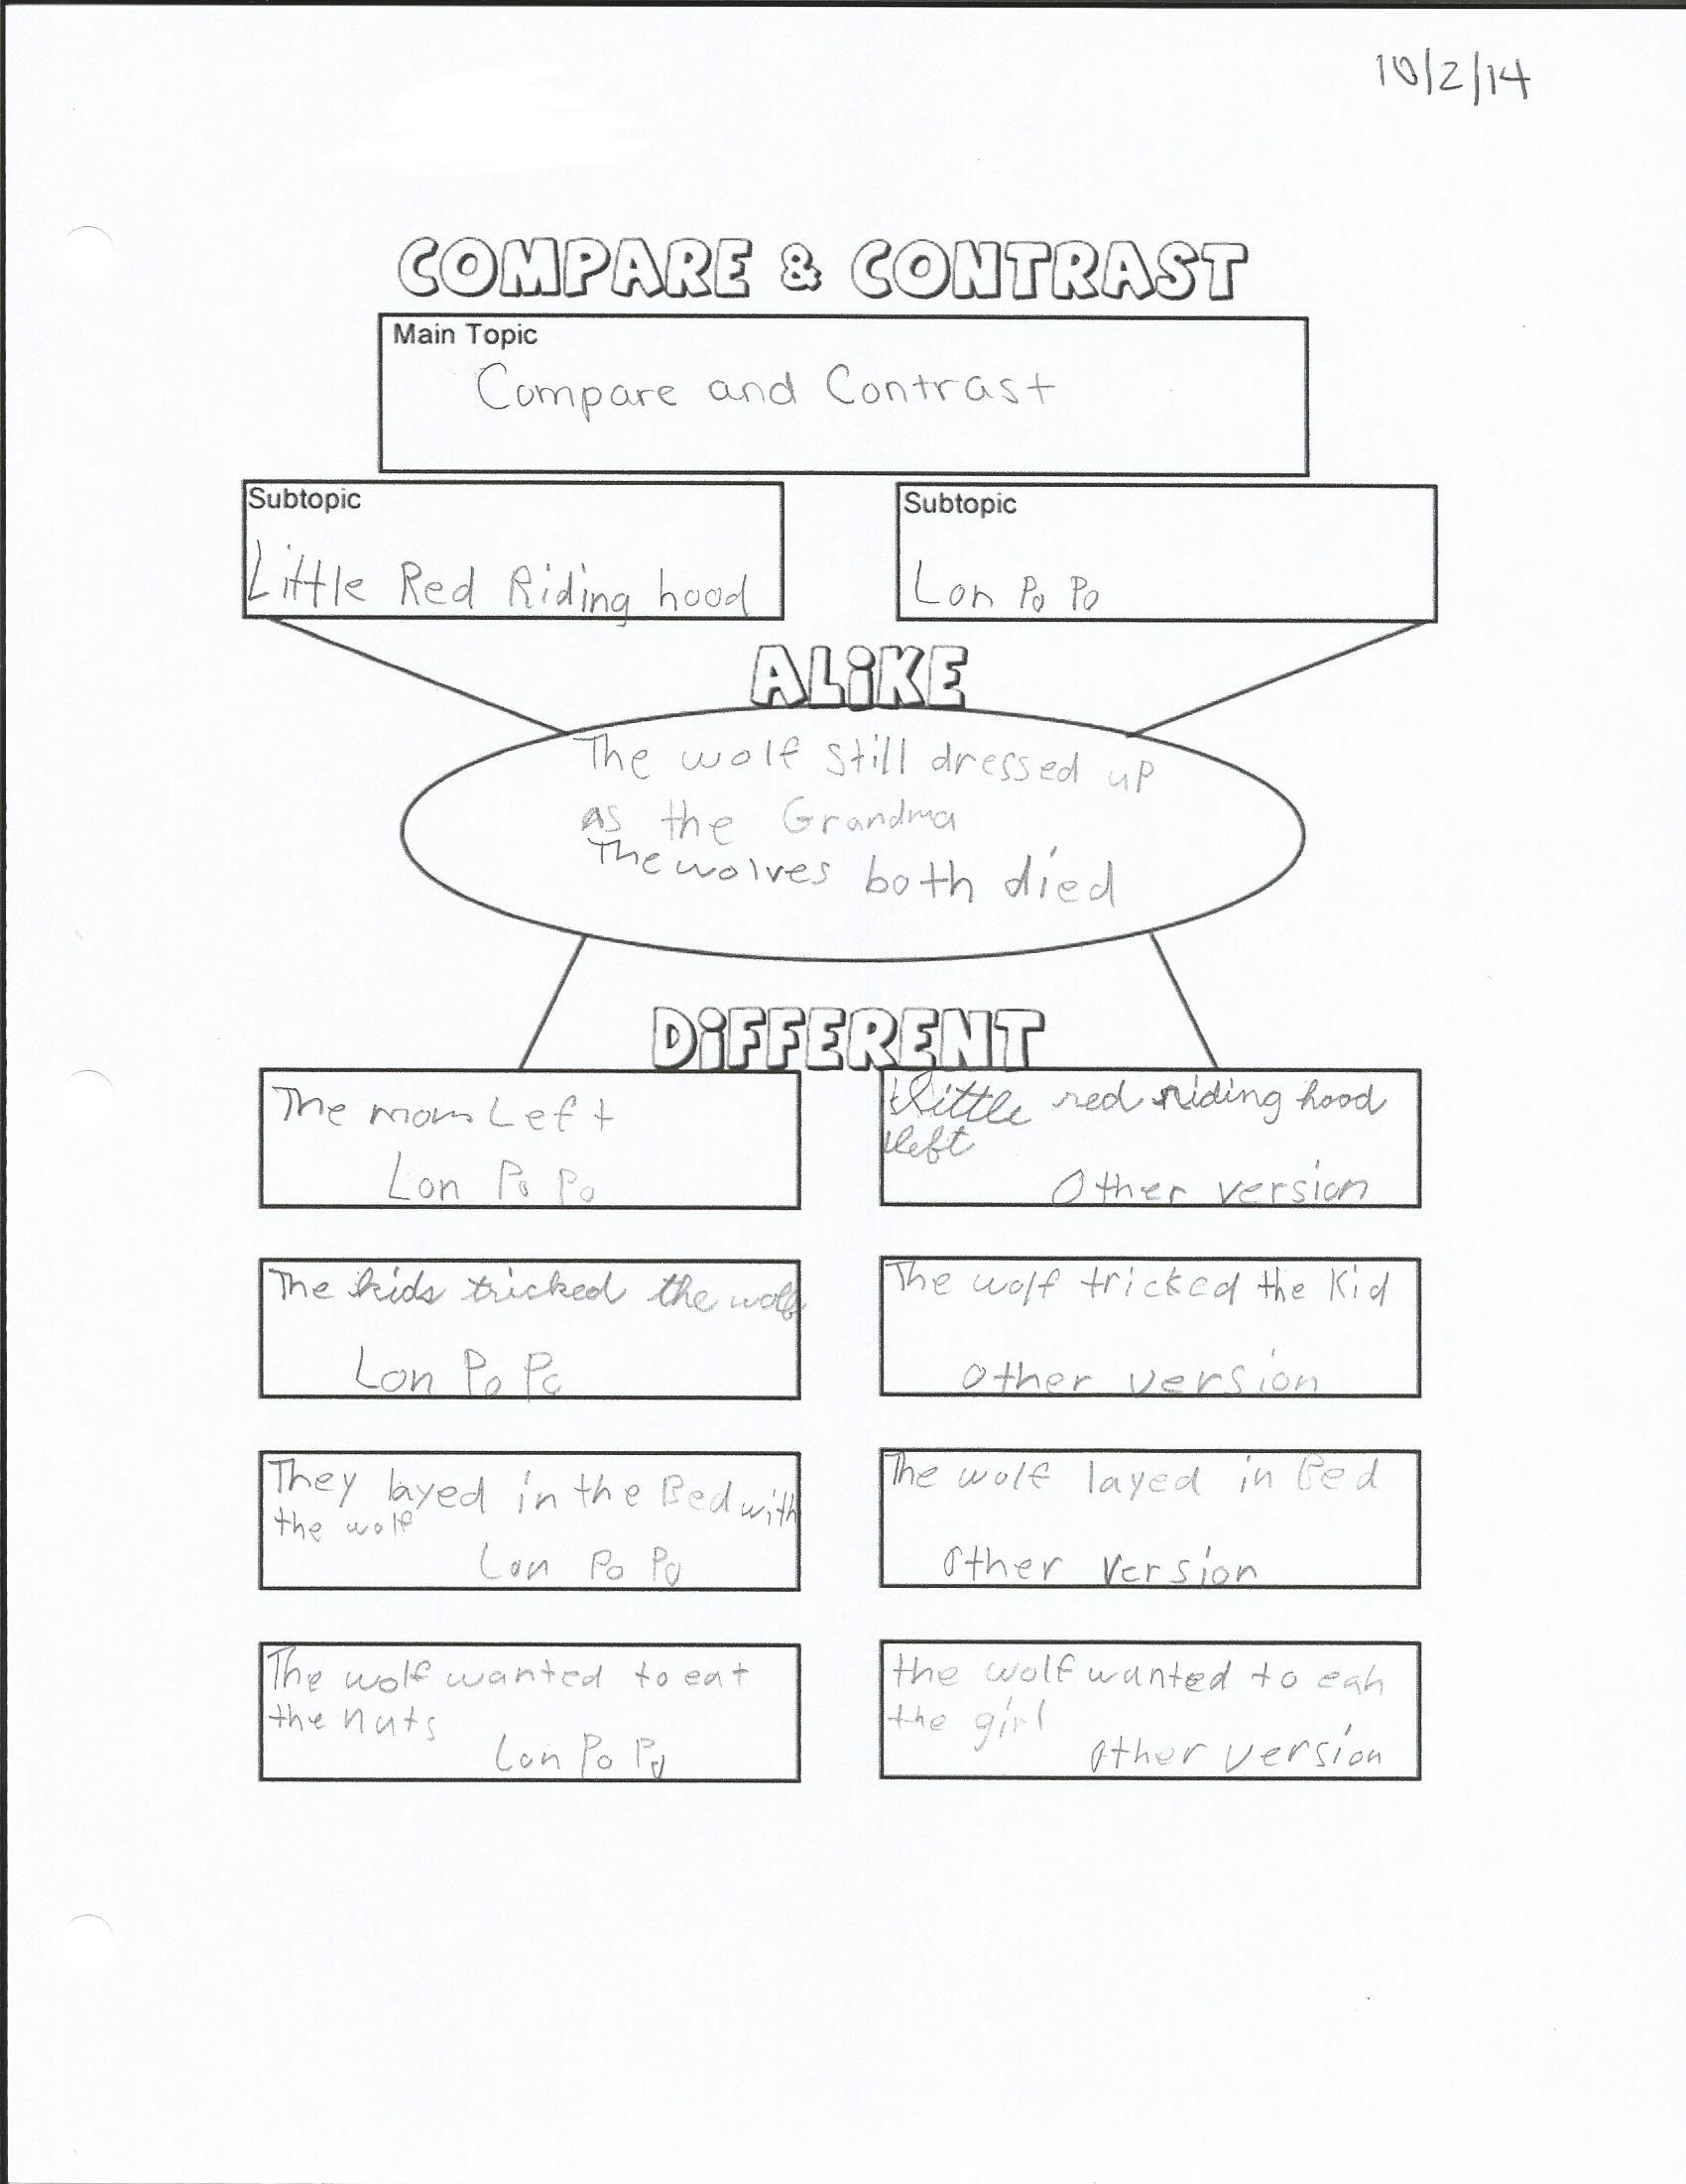 10/2/14
COMPARE & CONTRAST
Main Topic
Compare and Contrast
Subtopic
Little Red Riding hood
Subtopic
Lon Po Po
ALiKE
The wolf still dressed up
as the Grandma
The wolves both died
DiFFERENT
The mom Left
Lon Po Po
Little red riding hood
left
Other version
The kids tricked the wolf
Lon Po Po
The wolf tricked the Kid
Other version
They layed in the Bed with
the wolf
Lon Po Po
The wolf layed in Bed
Other Version
The wolf wanted to eat
the nuts
Lon Po Po
the wolf wanted to eah
the girl
Other version